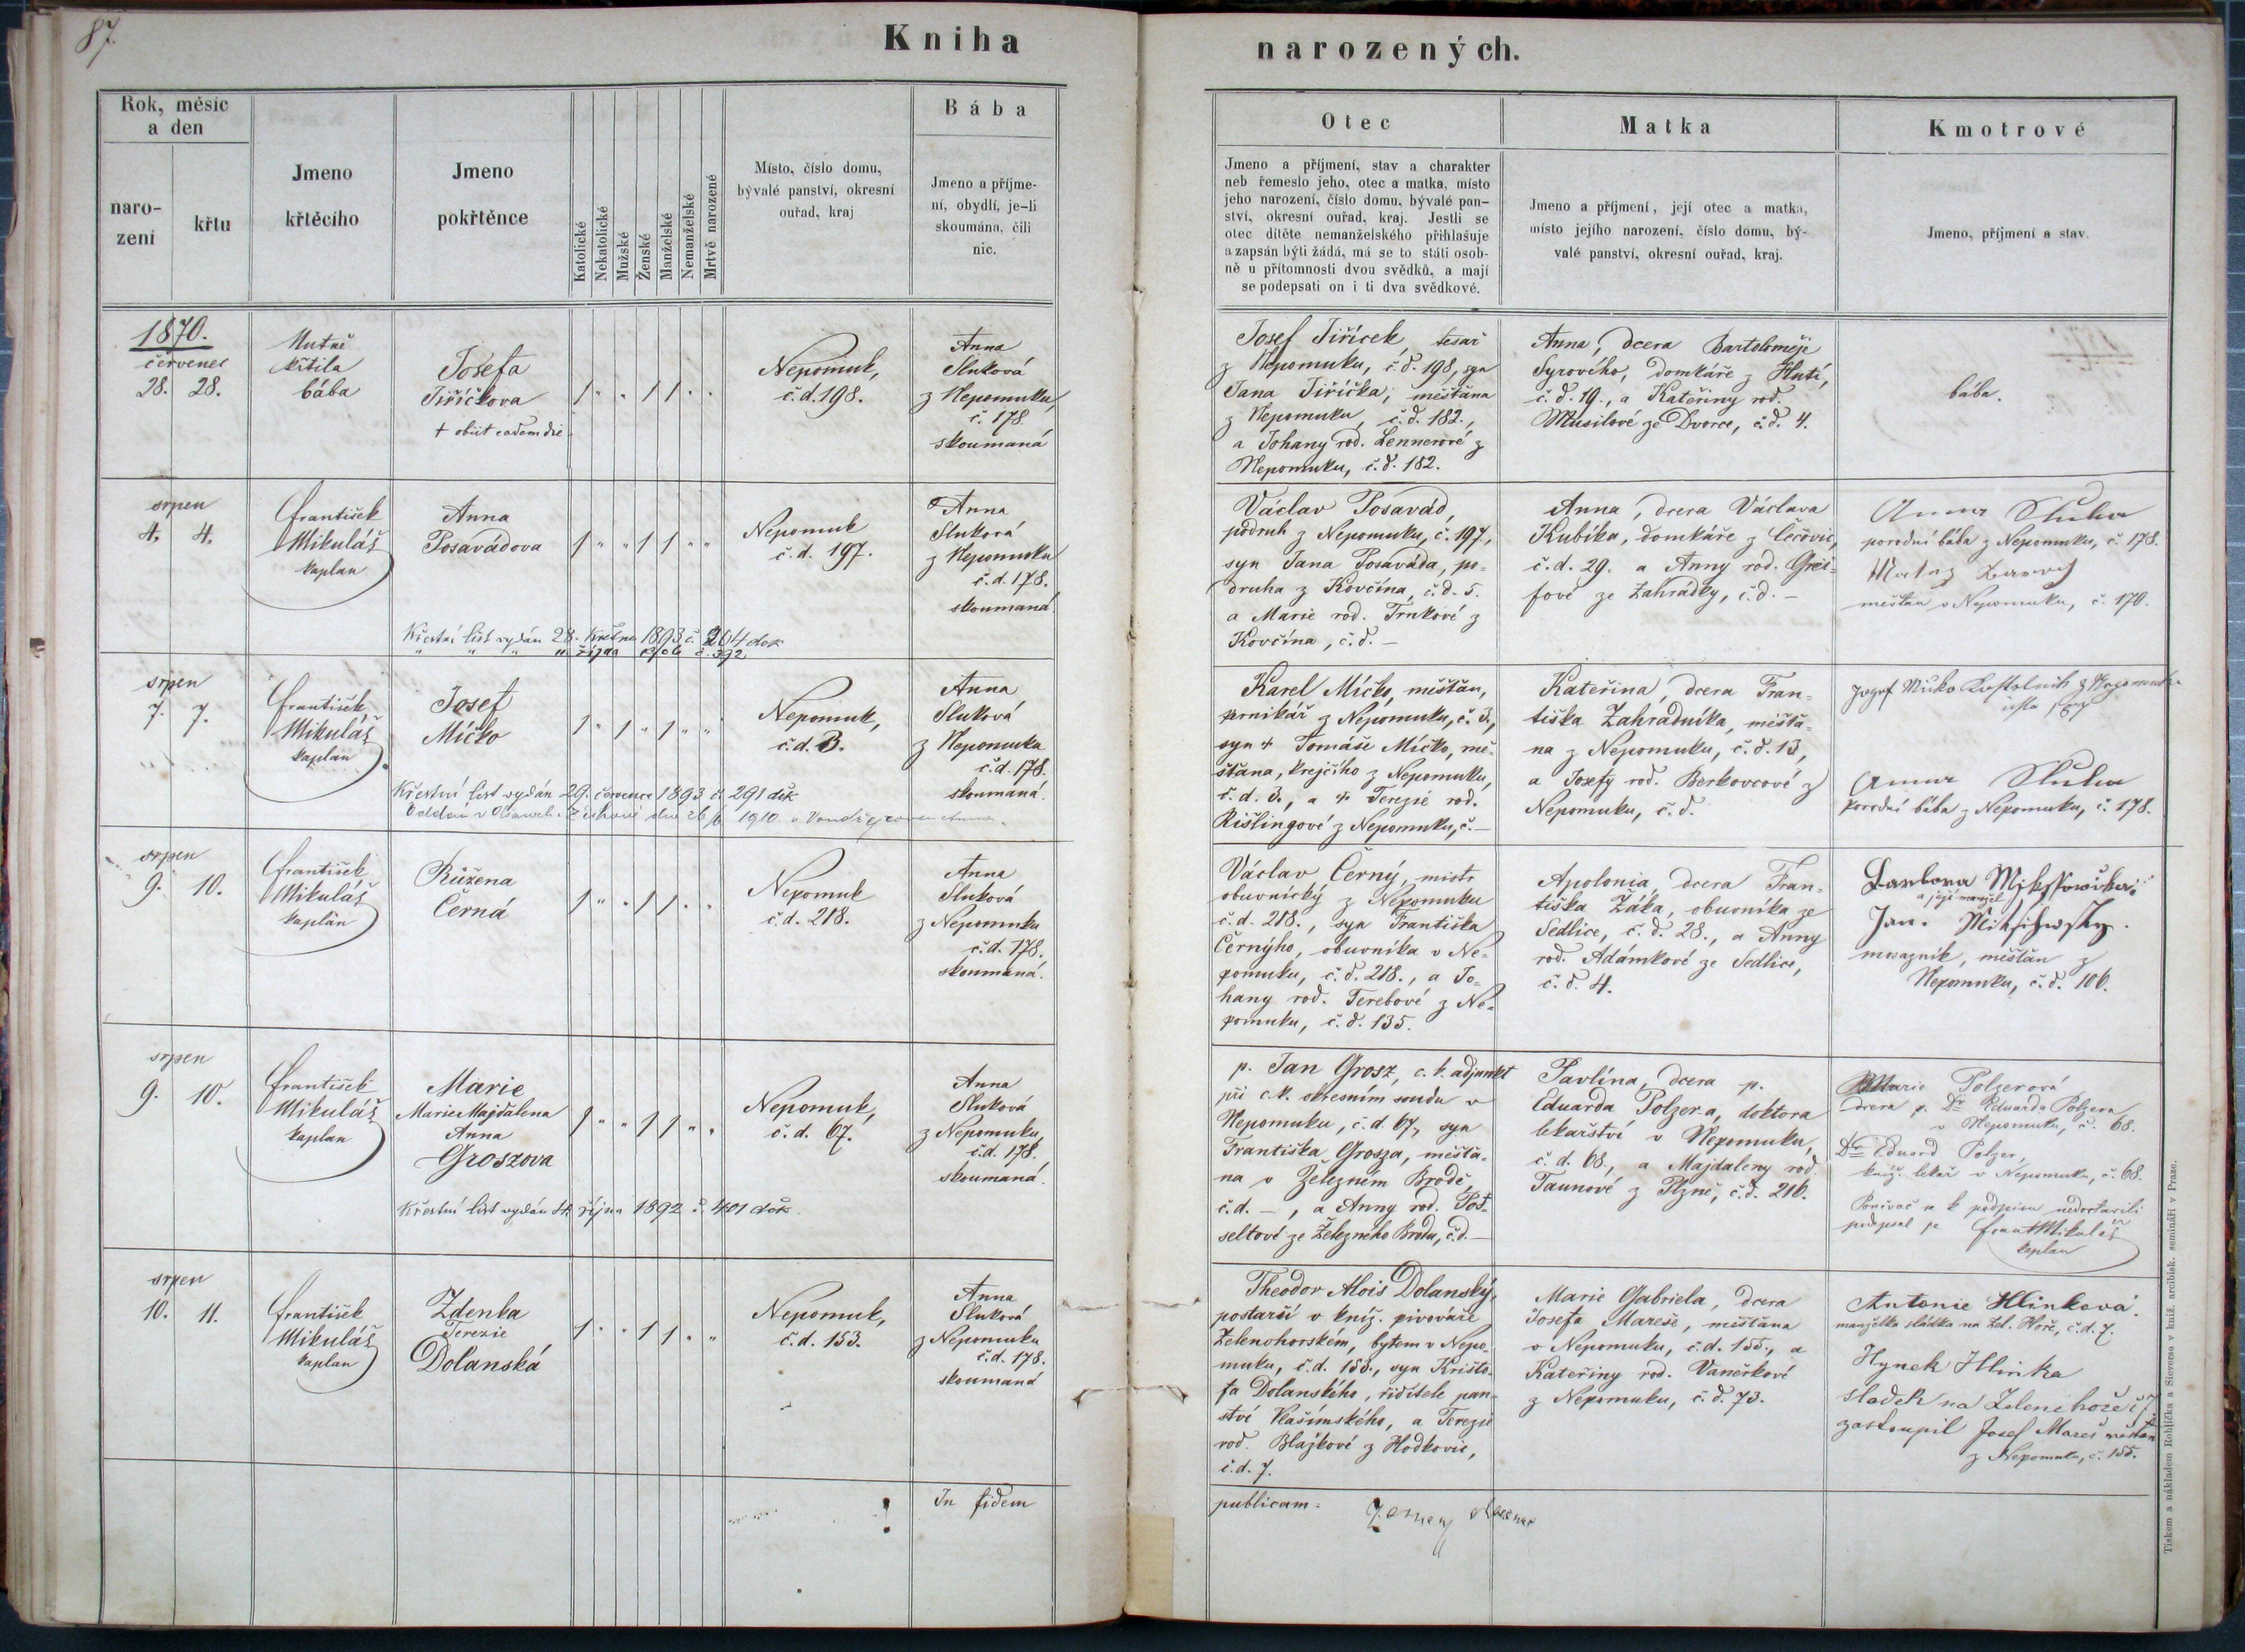 87.
Kniha
narozených.
Rok, měsíc
a den
naro-
zení
křtu
Jmeno
křtěcího
Jmeno
pokřtěnce
Katolické
Nekatolické
Mužské
Ženské
Manželské
Nemanželské
Mrtvě narozené
Místo, číslo domu,
bývalé panství, okresní
ouřad, kraj
Bába
Jmeno a příjme-
ní, obydlí, je-li
skoumána, čili
nic.
Otec
Jmeno a příjmení, stav a charakter
neb řemeslo jeho, otec a matka, místo
jeho narození, číslo domu, bývalé pan-
ství, okresní ouřad, kraj. Jestli se
otec dítěte nemanželského přihlašuje
a zapsán býti žádá, má se to státi osob-
ně u přítomnosti dvou svědků, a mají
se podepsati on i ti dva svědkové.
Matka
Jmeno a příjmení, její otec a matka,
místo jejího narození, číslo domu, bý-
valé panství, okresní ouřad, kraj.
Kmotrové
Jmeno, příjmení a stav.
1870.
červenec
28. 28.
Nutně
křtila
bába
Josefa
Jiříčkova
+ obiit eadem die
1 " " 1 1 " "
Nepomuk,
č.d. 198.
Anna
Sluková
z Nepomuku,
č. 178
skoumaná
Josef Jiřícek, tesař
z Nepomuku, č.d. 198, syn
Jana Jiříčka, měšťana
z Nepomuku, č.d. 182.,
a Johany rod. Lennerové z
Nepomuku, č.d. 182.
Anna, dcera Bartoloměje
Syrového, domkáře z Hutí,
č.d. 19., a Kateřiny rod.
Musilové ze Dvorce, č.d. 4.
bába.
srpen
4. 4.
František
Mikuláš
kaplan
Anna
Posavádova
1 " " 1 1 " "
Nepomuk
č.d. 197.
Anna
Sluková
z Nepomuku
č.d. 178.
skoumaná.
Křestní list vydán 28. května 1893 č. 204 dok
" " " " října č. 392
Václav Posavád,
podruh z Nepomuku, č. 197,
syn Jana Posaváda, po-
druha z Kovčína, č.d. 5.
a Marie rod. Trnkové z
Kovčína, č.d. –
Anna, dcera Václava
Kubíka, domkáře z Čečovic,
č.d. 29. a Anny rod. Grei-
fové ze Zahrádky, č.d. –
Anna Sluka
porodní bába z Nepomuku, č. 178.
měšťan v Nepomuku, č. 170.
srpen
7. 7.
František
Mikuláš
kaplan
Josef
Míčko
1 " 1 " 1 " "
Nepomuk,
č.d. 3.
Anna
Sluková
z Nepomuka
č.d. 178.
skoumaná.
Křestní list vydán 29. července 1893 č. 291 dok
Karel Míčko, měšťan,
perníkář z Nepomuku, č. 3.,
syn + Tomáše Míčko, mě-
šťana, krejčího z Nepomuku,
č.d. 3., a + Terezie rod.
Rišlingové z Nepomuku, č. –
Kateřina, dcera Fran-
tiška Zahradníka, měšťa-
na z Nepomuku, č.d. 13,
a Josefy rod. Berkovcové z
Nepomuku, č.d.
Anna Sluka
porodní bába z Nepomuku, č. 178.
srpen
9. 10.
František
Mikuláš
kaplan
Růžena
Černá
1 " " 1 1 " "
Nepomuk
č.d. 218.
Anna
Sluková
z Nepomuku
č.d. 178.
skoumaná.
Václav Černý, mistr
obuvnický z Nepomuku
č.d. 218., syn Františka
Černýho, obuvníka v Ne-
pomuku, č.d. 218., a Jo-
hany rod. Terebové z Ne-
pomuku, č.d. 135.
Apolonia, dcera Fran-
tiška Žáka, obuvníka ze
Sedlice, č.d. 28., a Anny
rod. Adámkové ze Sedlice,
č.d. 4.
a její manžel
Jan.
mosazník, měšťan z
Nepomuku, č.d. 106.
srpen
9. 10.
František
Mikuláš
kaplan
Marie
Marie Majdalena
Anna
Groszova
1 " " 1 1 " "
Nepomuk,
č.d. 67.
Anna
Sluková
z Nepomuku,
č.d. 178.
skoumaná.
Křestní list vydán 4. října 1892 č. 401 dok.
p. Jan Grosz, c.k. adjunkt
při c.k. okresním soudu v
Nepomuku, č.d. 67, syn
Františka Grosza, měšťa-
na v Železném Brodě,
č.d. –, a Anny rod. Pos-
seltové ze Železného Brodu, č.d. –
Pavlína, dcera p.
Eduarda Polzera, doktora
lekařství v Nepomuku,
č.d. 68., a Majdaleny rod.
Taunové z Plzně, č.d. 216.
Marie Polzerová
dcera p. Dr Eduarda Polzera
v Nepomuku, č. 68.
Dr Eduard Polzer,
kníž. lékař v Nepomuku, č. 68.
Ponivač se k podpisu nedostavili
podepsal je Frant Mikuláš
kaplan
srpen
10. 11.
František
Mikuláš
kaplan
Zdenka
Terezie
Dolanská
1 " " 1 1 " "
Nepomuk,
č.d. 153.
Anna
Sluková
z Nepomuku
č.d. 178.
skoumaná
Theodor Alois Dolanský,
postarší v kníž. pivováře
Zelenohorském, bytem v Nepo-
muku, č.d. 153., syn Krišto-
fa Dolanského, řiditele pan-
ství Vlašimského, a Terezie
rod. Blažkové z Hodkovic,
č.d. 7.
Marie Gabriela, dcera
Josefa Mareše, měšťana
v Nepomuku, č.d. 155., a
Kateřiny rod. Vaněrkové
z Nepomuku, č.d. 73.
Antonie Hlinková.
manželka sládka na Zel. Hoře, č.d. 7.
Hynek Hlinka
sládek na Zelené hoře č 7.
zastoupil Josef Mareš měšťan
z Nepomuku, č. 155.
In fidem
publicam:
Tiskem a nákladem Rohlíčka a Sieverse v kníž. arcibisk. semináři v Praze.